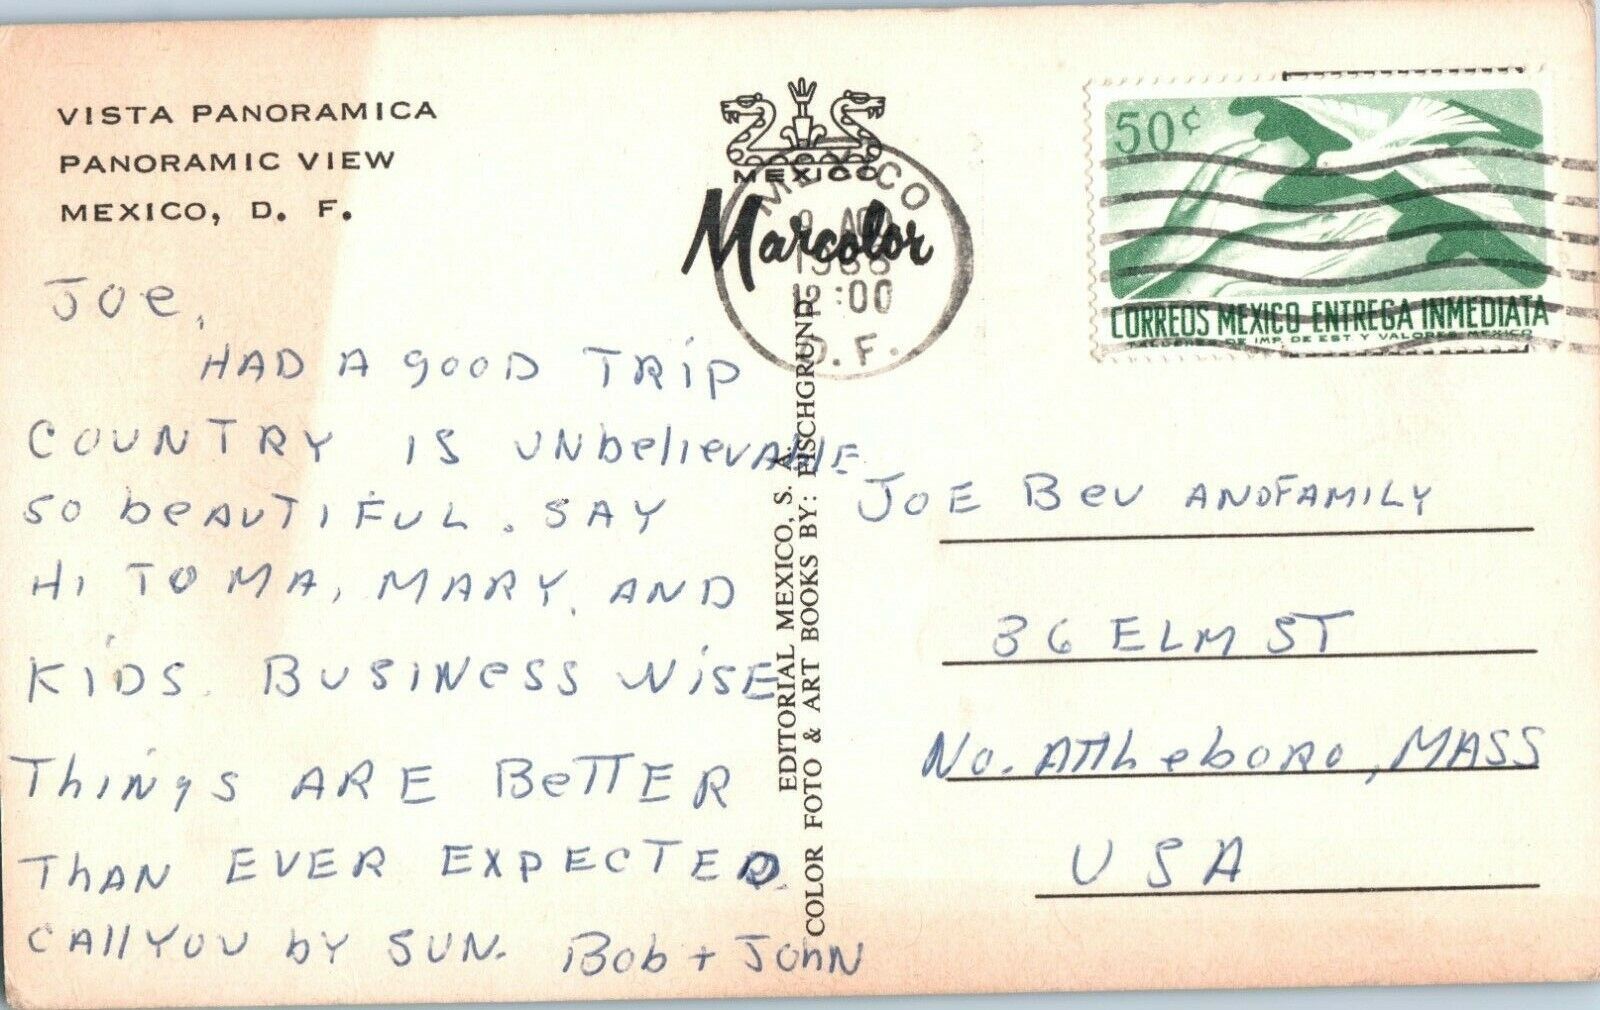 VISTA PANORAMICA
PANORAMIC VIEW
MEXICO, D. F.
Joe,
HAD A gOOD TRip
COUNTRY IS UNbelievABlE
SO beAUTIFUL. SAY
Hi TO MA, MARY, AND
KiDS. BUSINesS WiSE
ThiNgS ARE BeTTER
ThAN EVER EXPECTED.
CAll YOU bY SUN. Bob + JohN
MEXICO
Marcolor
EDITORIAL MEXICO, S. A.
COLOR FOTO & ART BOOKS BY: FISCHGRUND
MEXICO
12:00
D. F.
50¢
CORREOS MEXICO ENTREGA INMEDIATA
TALLERES DE IMP. DE EST. Y VALORES-MEXICO
JOE Bev ANDFAMILY
36 ELM ST
No. ATTleboro, MASS
USA